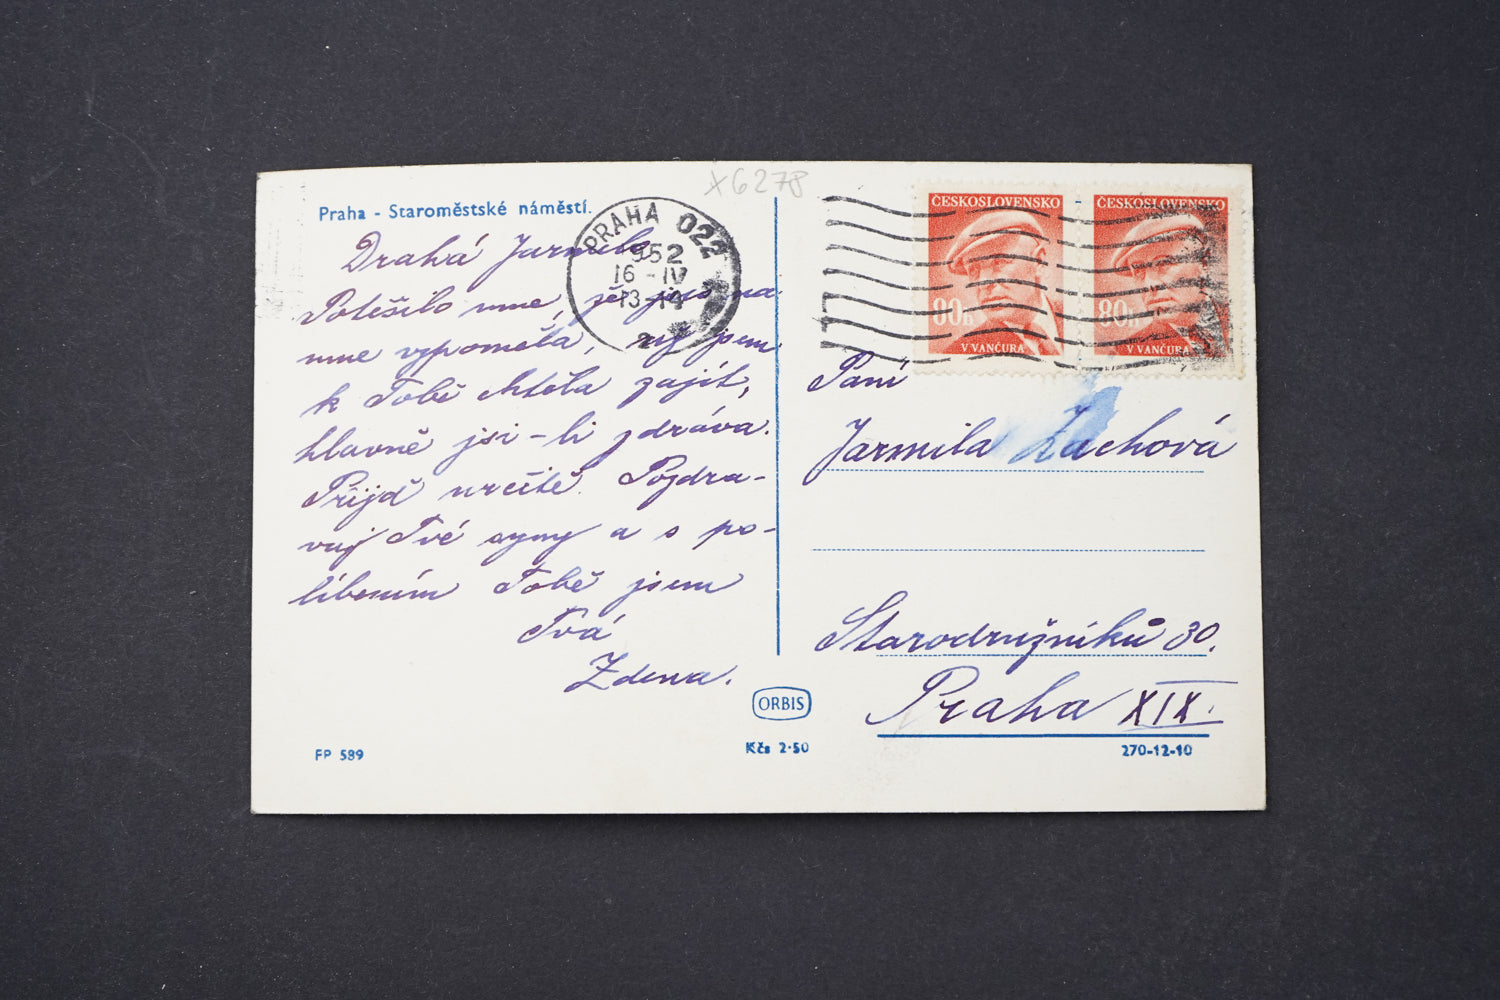 x6278
Praha - Staroměstské náměstí.
PRAHA 022
952
16 - IV
13-14
2
ČESKOSLOVENSKO
80h
V. VANČURA
ČESKOSLOVENSKO
80h
V. VANČURA
Drahá Jarmila
Potěšilo mne, že jsi na
mne vzpoměla, již jsem
k Tobě chtěla zajít,
hlavně jsi-li zdráva.
Přijď určitě. Pozdra-
vuj Tvé syny a s po-
líbením Tobě jsem
Tvá
Zdena.
Paní
Jarmila Zachová
Starodružníků 30.
Praha XIX.
ORBIS
FP 589
Kčs 2·50
270-12-10